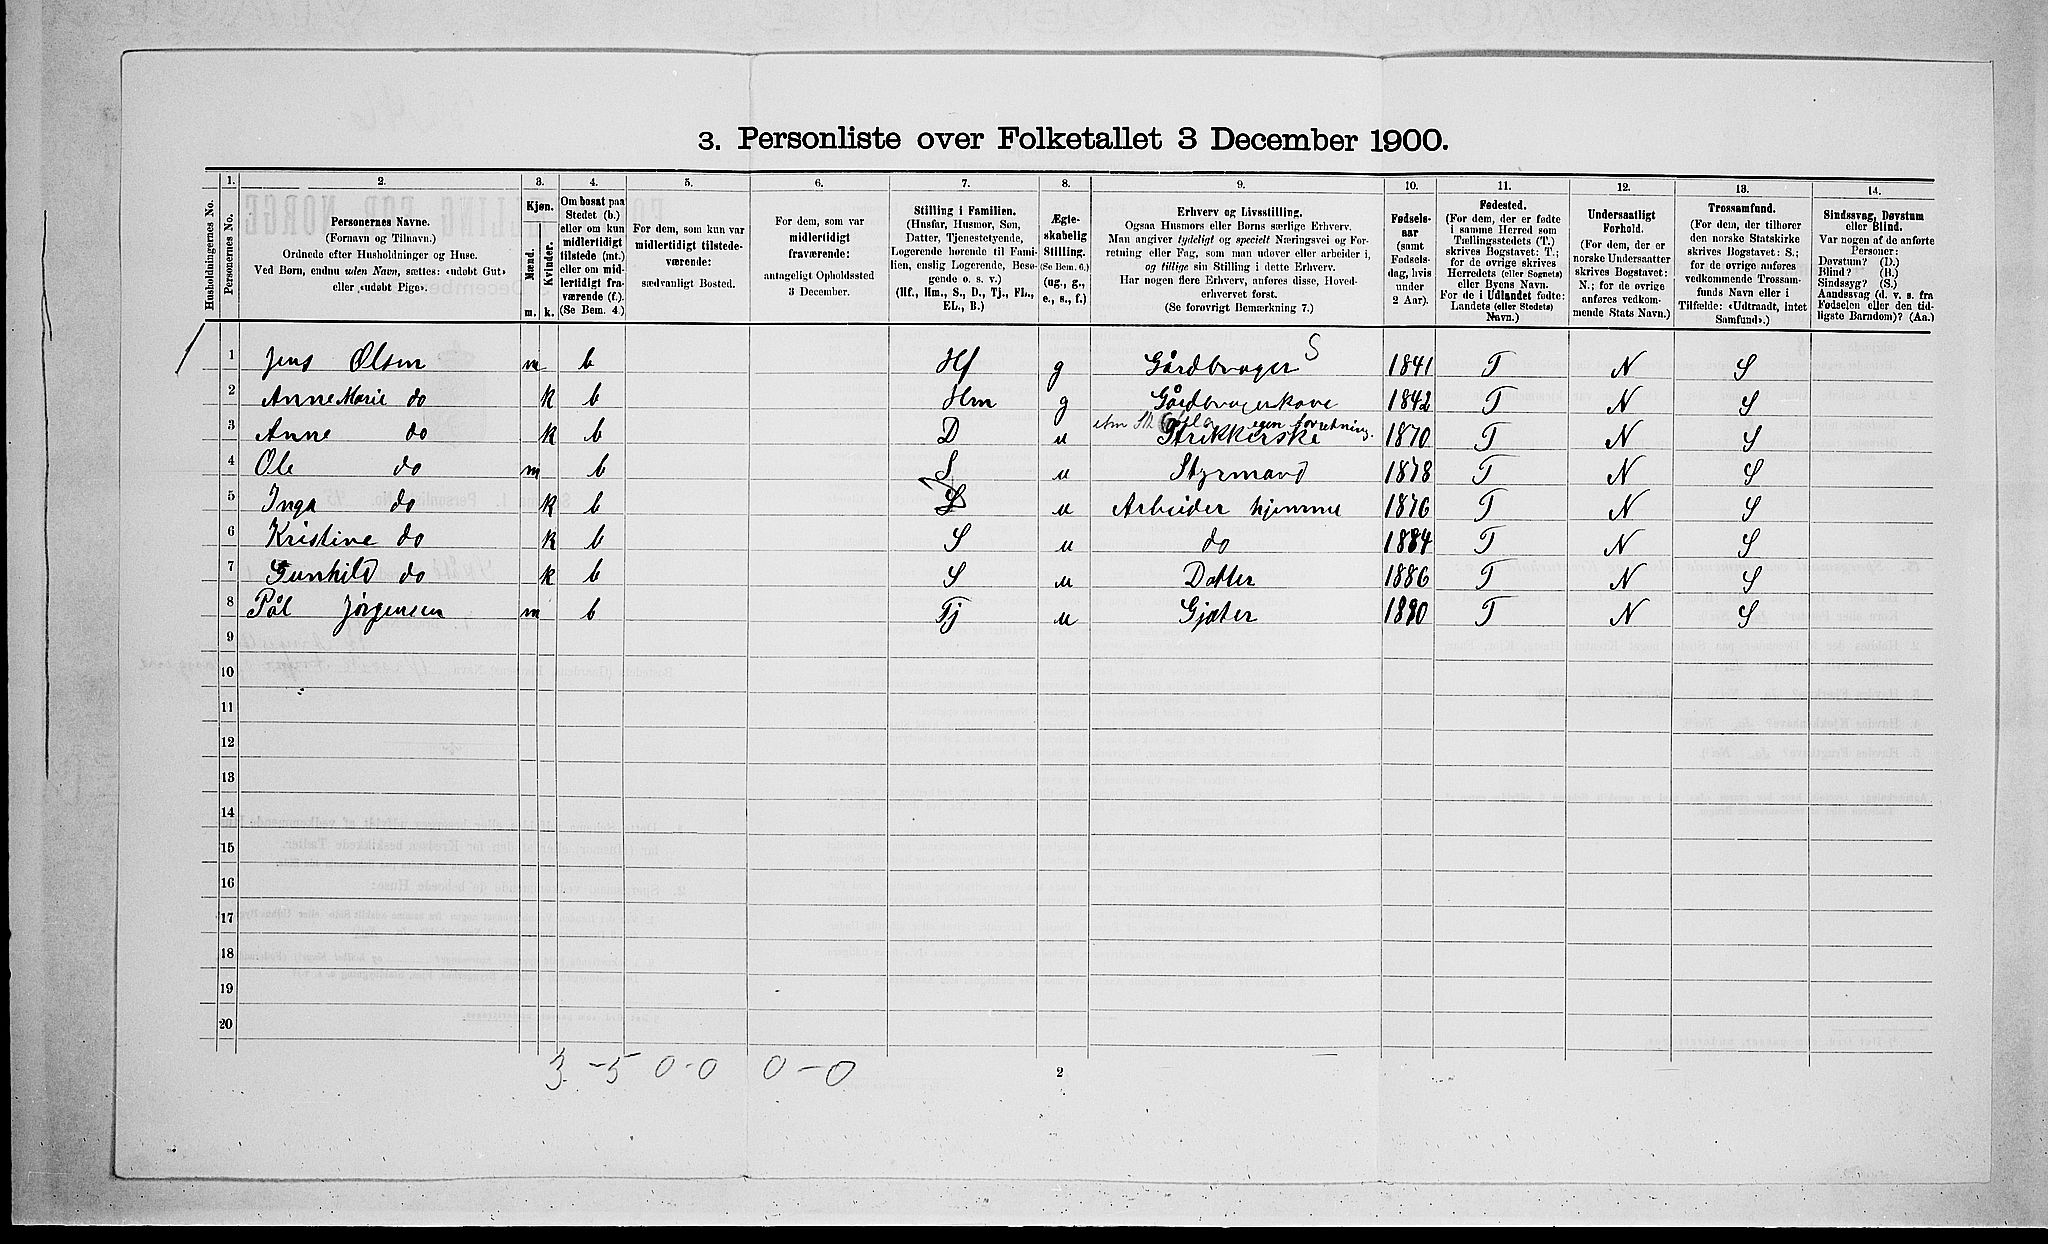 3. Personliste over Folketallet 3 December 1900.
1. 2. 3. 4. 5. 6. 7. 8. 9. 10. 11. 12. 13. 14.
Husholdningernes No.
Personernes No.
Personernes Navne.
(Fornavn og Tilnavn.)
Ordnede efter Husholdninger og Huse.
Ved Børn, endnu uden Navn, sættes: «udøbt Gut»
eller «udøbt Pige».
Kjøn.
Mænd. Kvinder.
m. k.
Om bosat paa
Stedet (b.)
eller om kun
midlertidigt
tilstede (mt.)
eller om mid-
lertidigt fra-
værende (f.).
(Se Bem. 4.)
For dem, som kun var
midlertidigt tilstede-
værende:
sædvanligt Bosted.
For dem, som var
midlertidigt
fraværende:
antageligt Opholdssted
3 December.
Stilling i Familien.
(Husfar, Husmor, Søn,
Datter, Tjenestetyende,
Logerende hørende til Fami-
lien, enslig Logerende, Besø-
gende o. s. v.)
(Hf., Hm., S., D., Tj., FL.,
EL., B.)
Ægte-
skabelig
Stilling.
(Se Bem. 6.)
(ug., g.,
e., s., f.)
Erhverv og Livsstilling.
Ogsaa Husmors eller Børns særlige Erhverv.
Man angiver tydeligt og specielt Næringsvei og For-
retning eller Fag, som man udøver eller arbeider i,
og tillige sin Stilling i dette Erhverv.
Har nogen flere Erhverv, anføres disse, Hoved-
erhvervet først.
(Se forøvrigt Bemærkning 7.)
Fødsels-
aar
(samt
Fødsels-
dag, hvis
under
2 Aar).
Fødested.
(For dem, der er fødte
i samme Herred som
Tællingsstedets (T.)
skrives Bogstavet: T.;
for de øvrige skrives
Herredets (eller Sognets)
eller Byens Navn.
For de i Udlandet fødte:
Landets (eller Stedets)
Navn.)
Undersaatligt
Forhold.
(For dem, der er
norske Undersaatter
skrives Bogstavet:
N.; for de øvrige
anføres vedkom-
mende Stats Navn.)
Trossamfund.
(For dem, der tilhører
den norske Statskirke
skrives Bogstavet: S.;
for de øvrige anføres
vedkommende Trossam-
funds Navn eller i
Tilfælde: «Udtraadt, intet
Samfund».)
Sindssvag, Døvstum
eller Blind.
Var nogen af de anførte
Personer:
Døvstum? (D.)
Blind? (B.)
Sindssyg? (S.)
Aandssvag (d. v. s. fra
Fødselen eller den tid-
ligste Barndom)? (Aa.)
1 Jens Olsen m b Hf g Gårdbruger S 1841 T N S
2 Anne Marie do k b Hm g Gårdbrugerkone 1842 T N S
egen forretning.
3 Anne do k b D u Strikkerske 1870 T N S
4 Ole do m b S u Styrmand 1878 T N S
5 Inga do k b u Arbeider hjemme 1876 T N S
6 Kristine do k b S u do 1884 T N S
7 Gunhild do k b S u Datter 1886 T N S
8 Pål Jørgensen m b Tj u Gjæter 1890 T N S
9
10
11
12
13
14
15
16
17
18
19
20
3 - 5 0 - 0 0 - 0
2